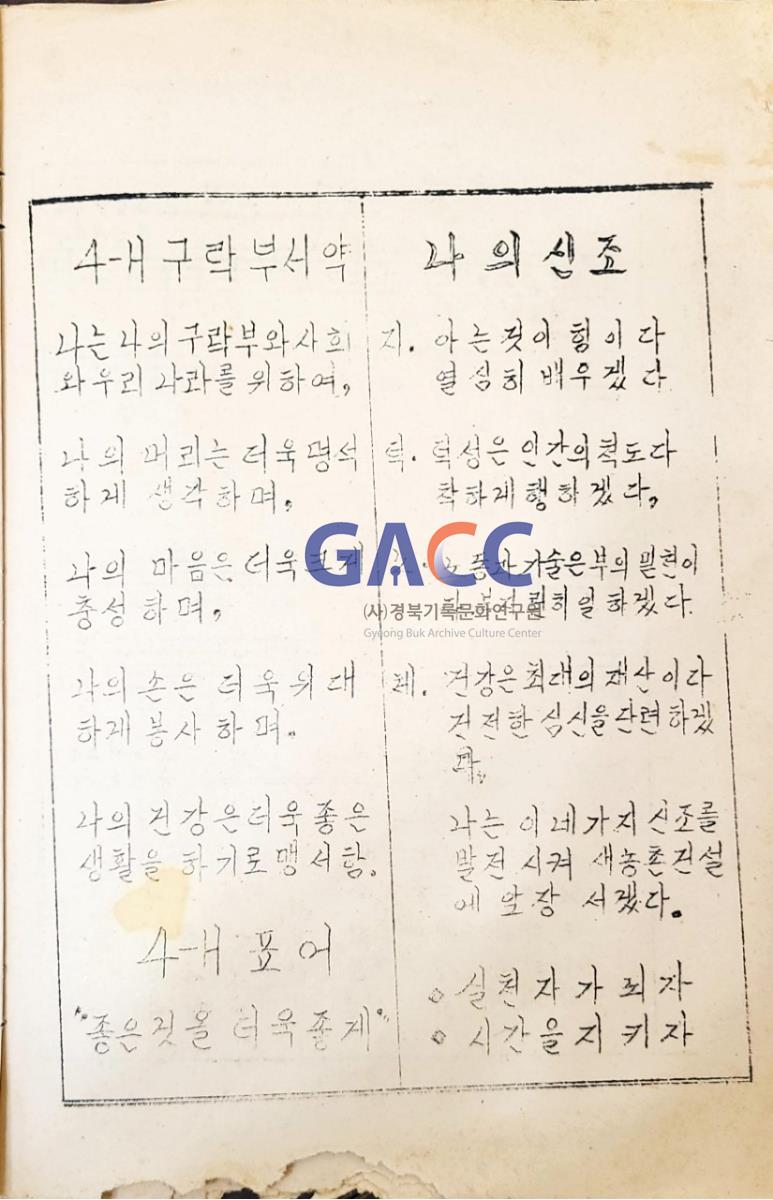 4-H 구락부서약
나는 나의 구락부와 사회
와 우리 나라를 위하여,
나의 머리는 더욱 명석
하게 생각하며,
나의 마음은 더욱 크게
충성하며,
나의 손은 더욱 위대
하게 봉사하며.
나의 건강은 더욱 좋은
생활을 하기로 맹서함.
4-H 표어
"좋은것을 더욱좋게"
나의 신조
지. 아는것이 힘이다
열심히 배우겠다
덕. 덕성은 인간의 척도다
착하게 행하겠다,
기술은 부의 밑천이
일하겠다.
체. 건강은 최대의 재산이다
건전한 심신을 단련하겠
다.
나는 이 네가지 신조를
발전시켜 새농촌건설
에 앞장 서겠다.
◦ 실천자가 되자
◦ 시간을 지키자
GACC
(사)경북기록문화연구원
Gyeong Buk Archive Culture Center